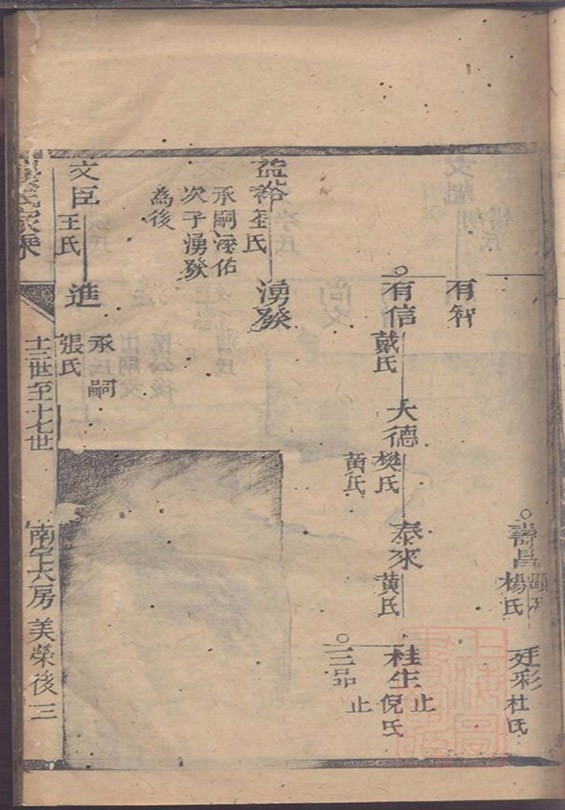 壽昌
楊氏
廷彩
杜氏
有智
有信
戴氏
大德
樊氏
黃氏
泰來
黃氏
桂生
倪氏
止
三品
止
湧發
盈裕
氏
承嗣
次子湧發
為後
文臣
王氏
進
承嗣
張氏
氏家乘
十三世至十七世
六房
美榮後
三